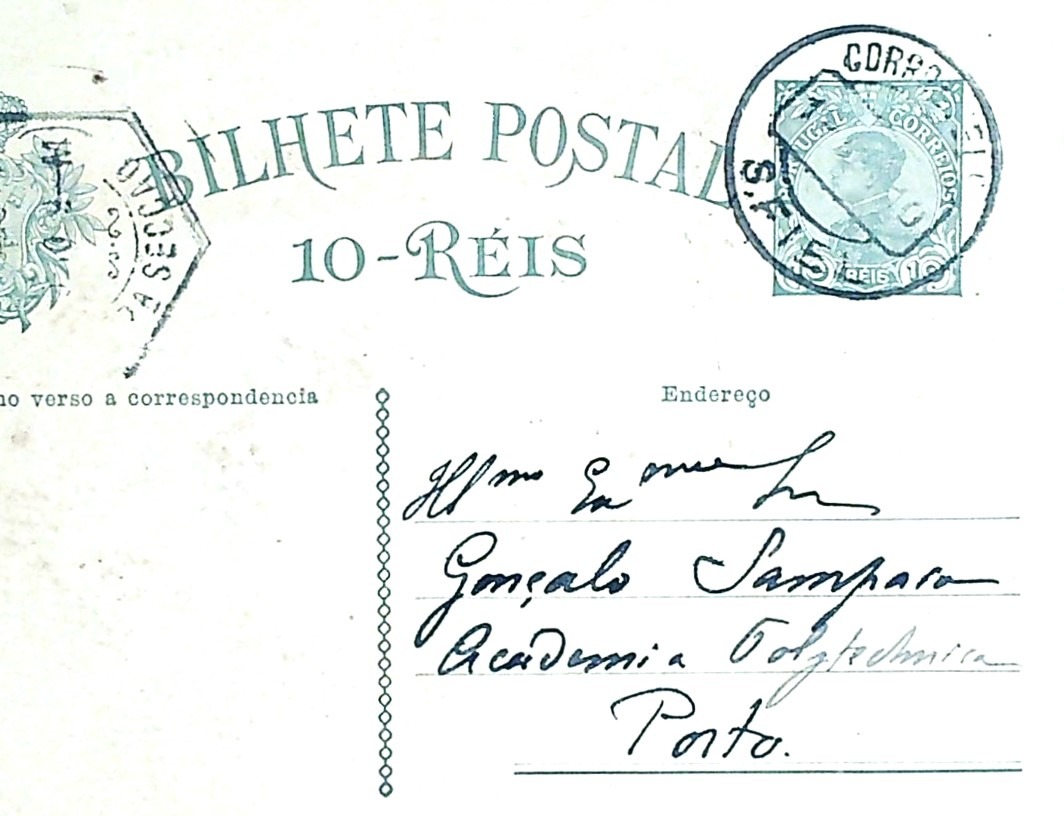 BILHETE POSTAL
10-RÉIS
UGAL CORREIOS
REIS 10
S. F. 15
DA SECÇÃO
no verso a correspondencia
Endereço
Illmo Exmo Sr
Gonçalo Sampaio
Academia Polytechnica
Porto.